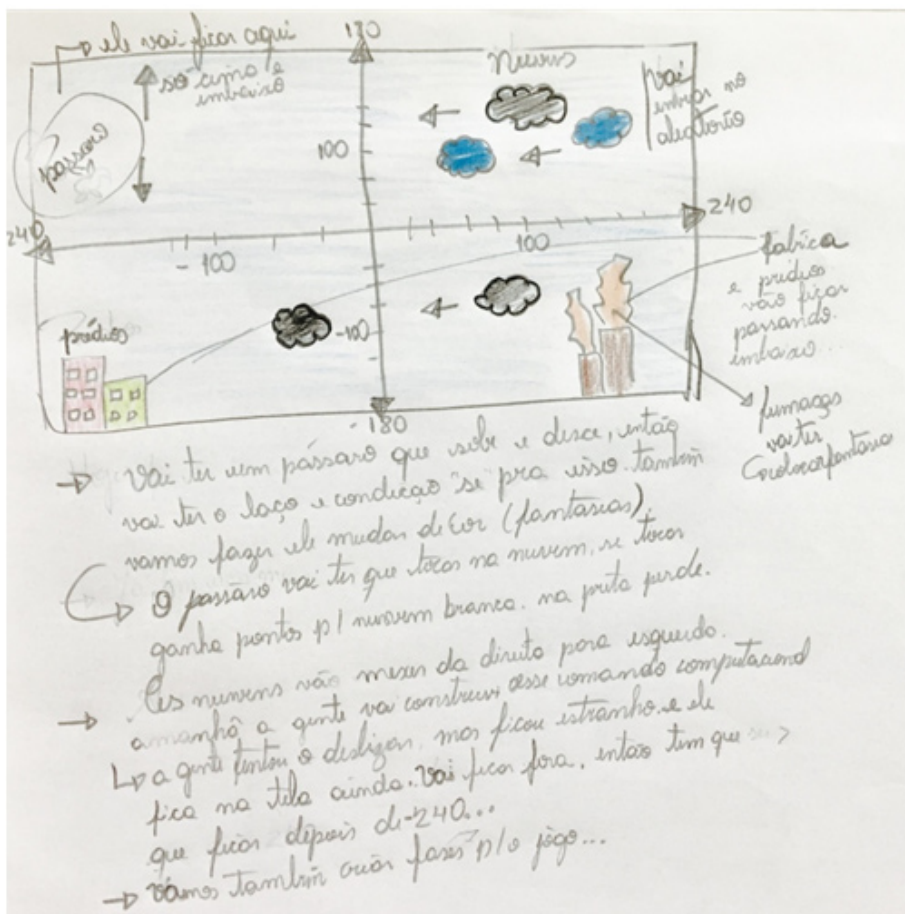 ele vai ficar aqui
180
só cima e
embaixo
Nuvens
Vai
entrar no
aleatório
pássaro
100
240
240
- 100
100
fabrica
e prédios
vão ficar
passando
embaixo...
prédios
-100
-180
fumaças
vai ter
fantasia
Vai ter um pássaro que sobe e desce, então
vai ter o laço e condição "se" pra isso. também
vamos fazer ele mudar de cor (fantasias).
O pássaro vai ter que tocar na nuvem, se tocar
ganha pontos p/ nuvem branca. na preta perde.
As nuvens vão mexer da direita para esquerda.
amanhã a gente vai construir esse comando computacional
a gente tentou o deslizar, mas ficou estranho. e ele
fica na tela ainda. Vai ficar fora, então tem que
que ficar depois de -240...
Vamos também criar fases p/ o jogo...